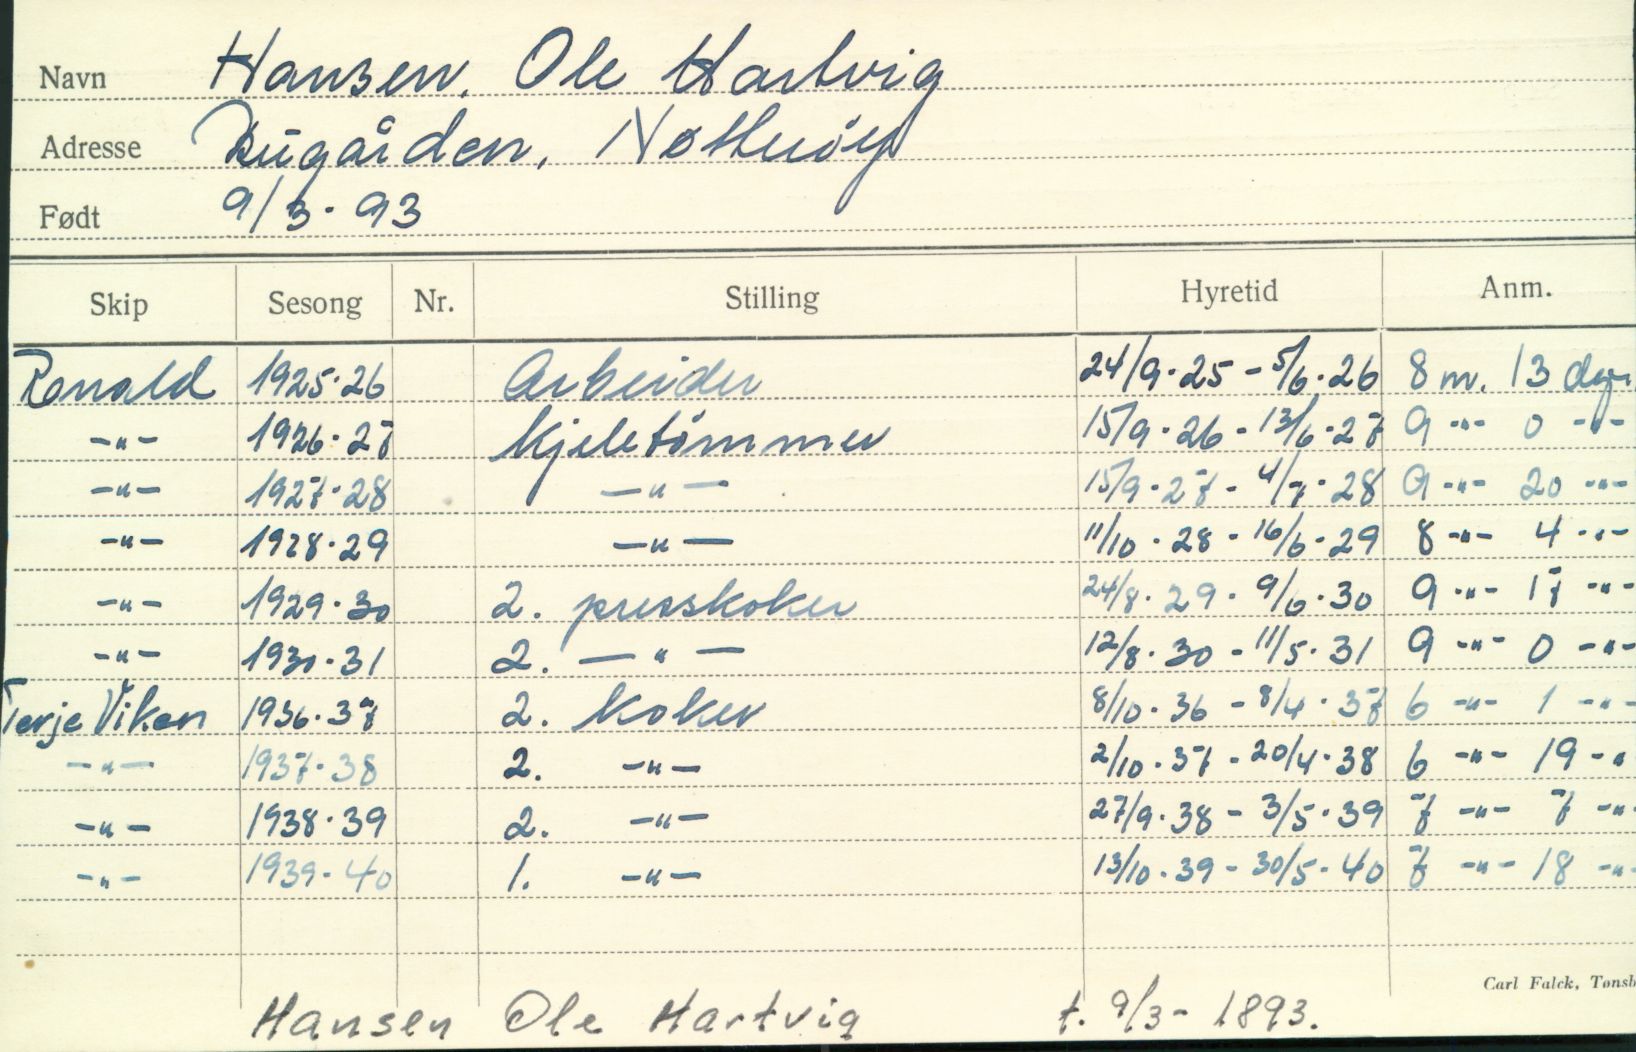 Navn Hansen, Ole Hartvig
Adresse Bugården, Nøtterøy
Født 9/3·93
Skip Sesong Nr. Stilling Hyretid Anm.
Ronald 1925·26 Arbeider 24/9·25 - 5/6·26 8 m. 13 dgr.
-"- 1926·27 Kjeletömmer 15/9·26 - 13/6·27 9 -"- 0 -"-
-"- 1927·28 -"- 15/9·27 - 4/7·28 9 -"- 20 -"-
-"- 1928·29 -"- 11/10·28 - 16/6·29 8 -"- 4 -"-
-"- 1929·30 2. presskoker 24/8·29 - 9/6·30 9 -"- 17 -"-
-"- 1930·31 2. -"- 12/8·30 - 11/5·31 9 -"- 0 -"-
Terje Viken 1936·37 2. koker 8/10·36 - 8/4·37 6 -"- 1 -"-
-"- 1937·38 2. -"- 2/10·37 - 20/4·38 6 -"- 19 -"
-"- 1938·39 2. -"- 27/9·38 - 3/5·39 7 -"- 7 -"-
-"- 1939-40 1. -"- 13/10·39 - 30/5·40 7 -"- 18 -"-
Carl Falck, Tønsb
Hansen Ole Hartvig f. 9/3- 1893.